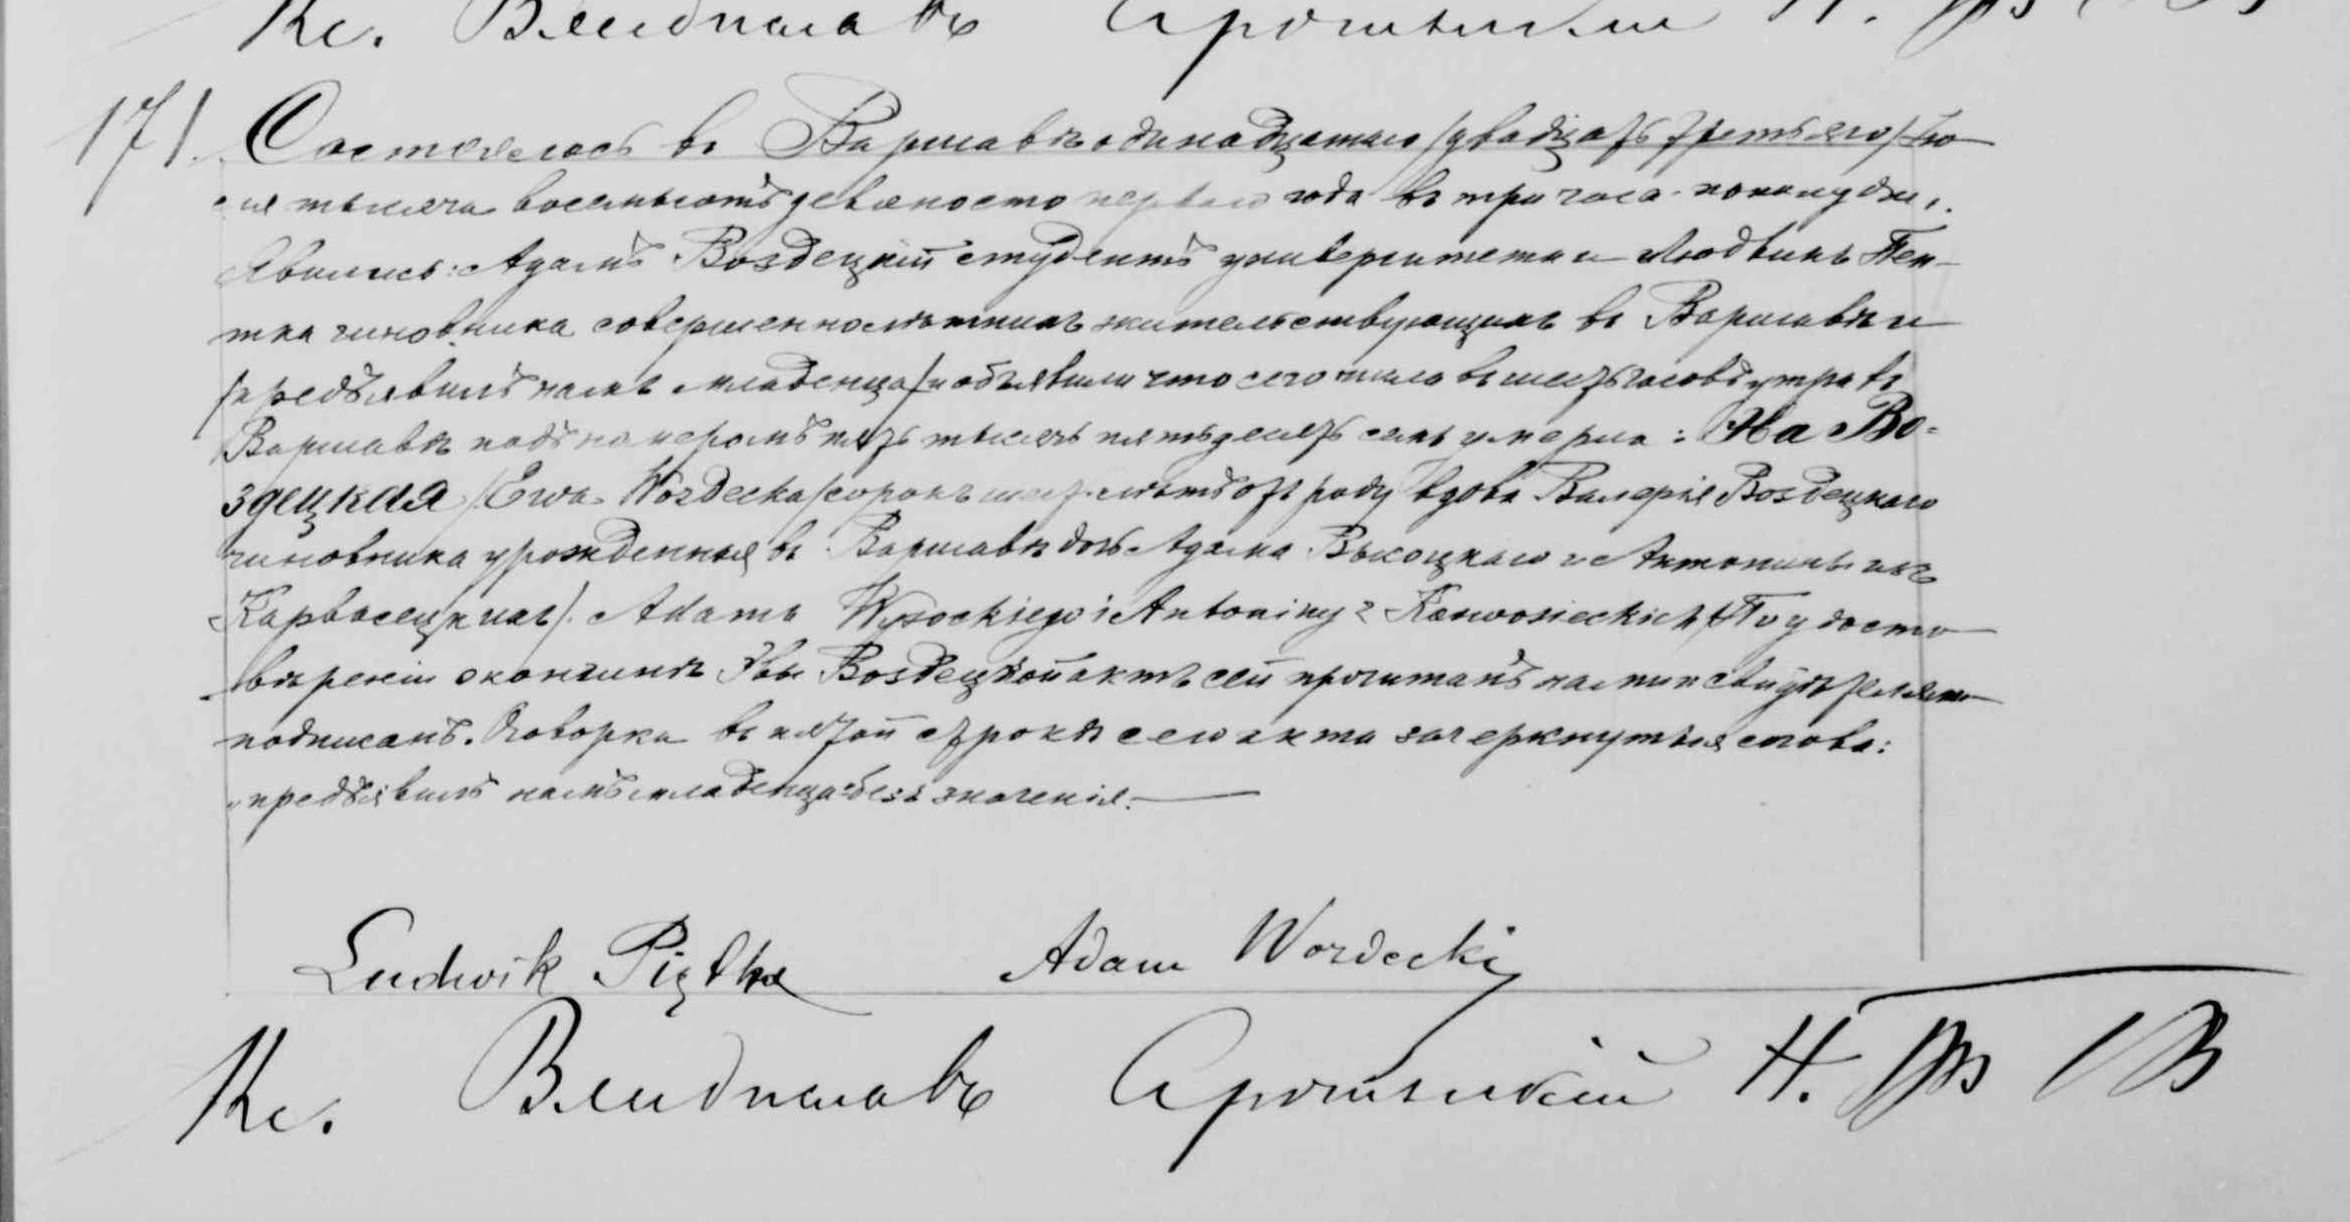 Кс. Владиславъ
171. Состоялось въ Варшавѣ одинадцатаго /двадцать третьяго/ Ію-
ня тысяча восемьсотъ девяносто перваго года въ три часа пополудни.
Явились: Адамъ Воздецкій студентъ университета и Людвикъ Пен-
тка чиновника совершеннолѣтнихъ жительствующихъ въ Варшавѣ и
/предъявилъ намъ младенца/ и объявили что сего числа въ шесть часовъ утра въ
Варшавѣ подъ номеромъ пять тысячъ пятьдесятъ семь умерла: Ева Во-
здецкая /Ewa Wozdecka/ сорокъ шесть лѣтъ отъ роду вдова Валерія Воздецкаго
чиновника урожденная въ Варшавѣ дочь Адама Высоцкаго и Антонины изъ
Карвосецкихъ /Adama Wysockiego i Antoniny z Karwosieckich/ По удосто-
вѣреніи о кончинѣ Евы Воздецкой актъ сей прочитанъ нами и свидѣтелями
подписанъ. Оговорка въ пятой строкѣ сего акта зачеркнутыя слова:
„предъявилъ намъ младенца" безъ значенія.
Ludwik Piętka Adam Wozdecki
Кс. Владиславъ Н.